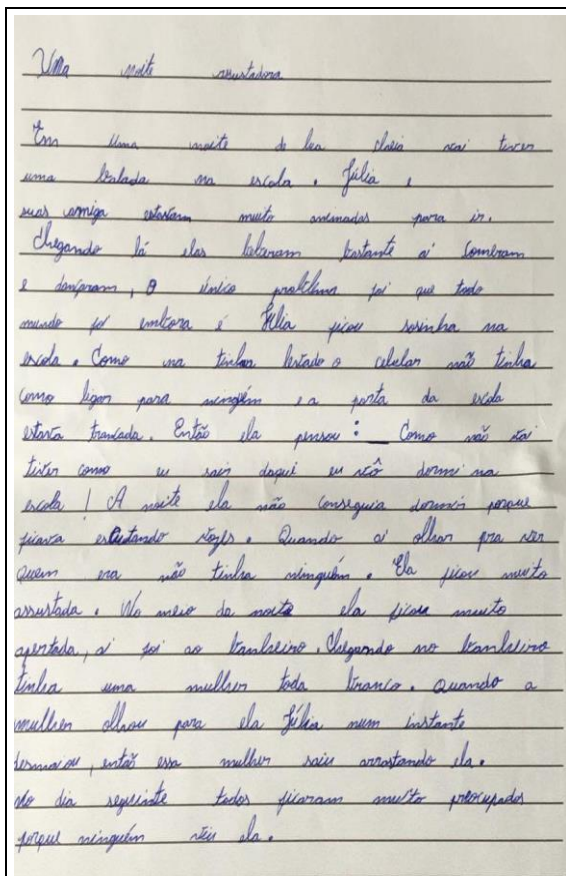 Uma noite assustadora
Em uma noite de lua cheia vai tiver
uma balada na escola. Júlia e
suas amiga estavam muito animadas para ir.
Chegando lá elas beberam bastante ai comeram
e dançaram, O único problema foi que todo
mundo foi embora é Júlia ficou sosinha na
escola. Como na tinha levado o celular não tinha
como ligar para ninguém e a porta da escola
estava trancada. Então ela pensou: _ Como não vai
tiver como eu sair daqui eu vô dormi na
escola! A noite ela não conseguia dormir porque
ficava escutando vozes. Quando ai olhar pra ver
quem era não tinha ninguém. Ela ficou muito
assustada. No meio da noite ela ficou muito
apertada, ai foi ao banheiro. Chegando no banheiro
tinha uma mulher toda branco. Quando a
mulher olhou para ela Júlia num instante
desmaiou, então essa mulher saiu arrastando ela.
No dia seguinte todos ficaram muito preocupados
porque ninguém viu ela.